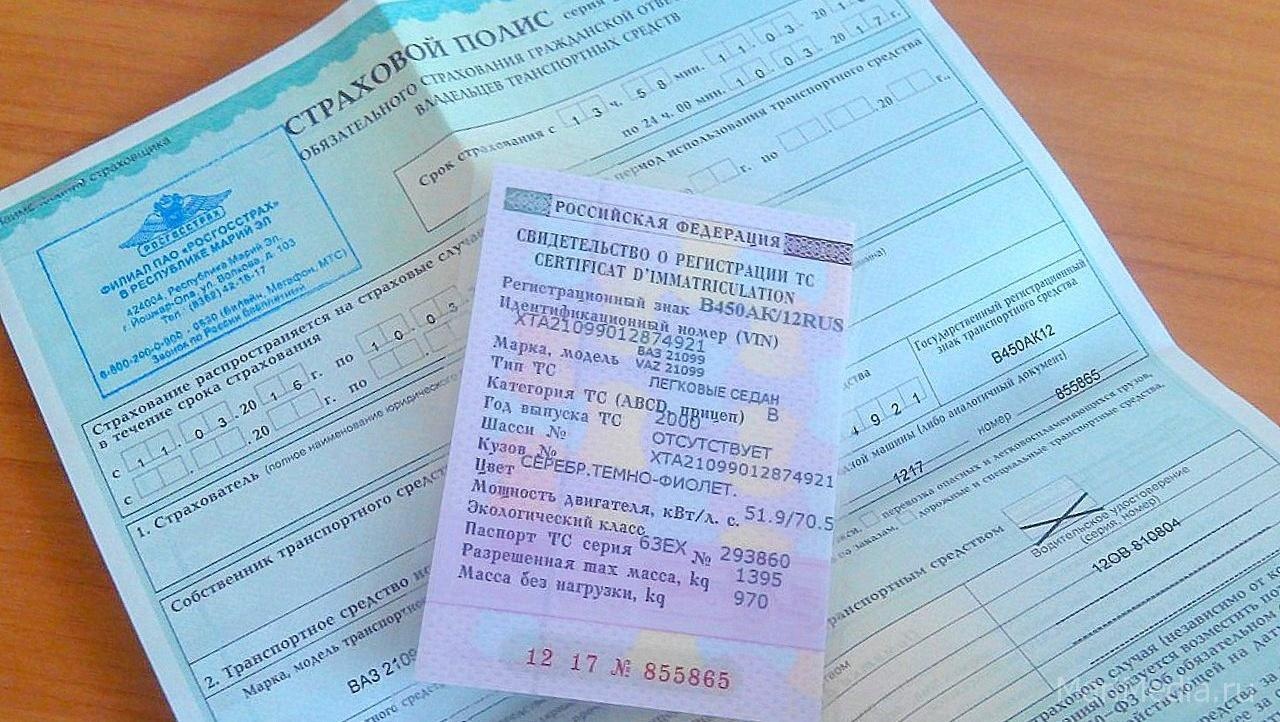 СТРАХОВОЙ ПОЛИС серия
ОБЯЗАТЕЛЬНОГО СТРАХОВАНИЯ ГРАЖДАНСКОЙ ОТВЕ
ВЛАДЕЛЬЦЕВ ТРАНСПОРТНЫХ СРЕДСТВ
страховщика
РОСГОССТРАХ
ФИЛИАЛ ПАО «РОСГОССТРАХ»
В РЕСПУБЛИКЕ МАРИЙ ЭЛ
424004, Республика Марий Эл,
г. Йошкар-Ола, ул. Волкова, д. 103
Тел.: (8362) 42-16-17
8-800-200-0-900 - 0530 (Билайн, Мегафон, МТС)
Звонок по России бесплатный
Срок страхования с 13 ч. 58 мин. 11.03.201
по 24 ч. 00 мин. 10.03.2017 г.
период использования транспортного средства
г. по 20 г.,
Страхование распространяется на страховые случа
в течение срока страхования
с 11.03.2016 г. по 10.03
с . .20 г. по
1. Страхователь (полное наименование юридического
Собственник транспортного средс
2. Транспортное средство
Марка, модель транспортн
ВАЗ 2109
Государственный регистрационный
знак транспортного средства
В450АК12
4921
(либо аналогичный документ)
1217 номер 855865
перевозка опасных и легковоспламеняющихся грузов,
дорожные и специальные транспортные средства,
транспортным средством
Водительское удостоверение
(серия, номер)
12ОВ 810804
РОССИЙСКАЯ ФЕДЕРАЦИЯ
СВИДЕТЕЛЬСТВО О РЕГИСТРАЦИИ ТС
CERTIFICAT D'IMMATRICULATION
Регистрационный знак В450АК/12RUS
Идентификационный номер (VIN)
XTA21099012874921
Марка, модель ВАЗ 21099
VAZ 21099
Тип ТС ЛЕГКОВЫЕ СЕДАН
Категория ТС (ABCD, прицеп) B
Год выпуска ТС 2000
Шасси № ОТСУТСТВУЕТ
Кузов № XTA21099012874921
Цвет СЕРЕБР.ТЕМНО-ФИОЛЕТ.
Мощность двигателя, кВт/л. с. 51.9/70.5
Экологический класс
Паспорт ТС серия 63ЕХ № 293860
Разрешенная max масса, kg 1395
Масса без нагрузки, kg 970
12 17 № 855865